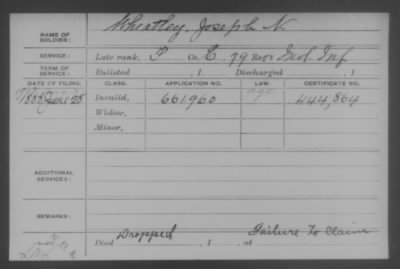 Wheatley, Joseph N.
NAME OF SOLDIER:
SERVICE: Late rank, P Co. E, 79 Reg't Ind. Inf
TERM OF SERVICE: Enlisted , 1 Discharged , 1
DATE OF FILING. CLASS. APPLICATION NO. LAW. CERTIFICATE NO.
1888 June 28 Invalid, 661,960 444,864
Widow,
Minor,
ADDITIONAL SERVICES:
REMARKS:
Dropped Failure to Claim
Died , 1 , at